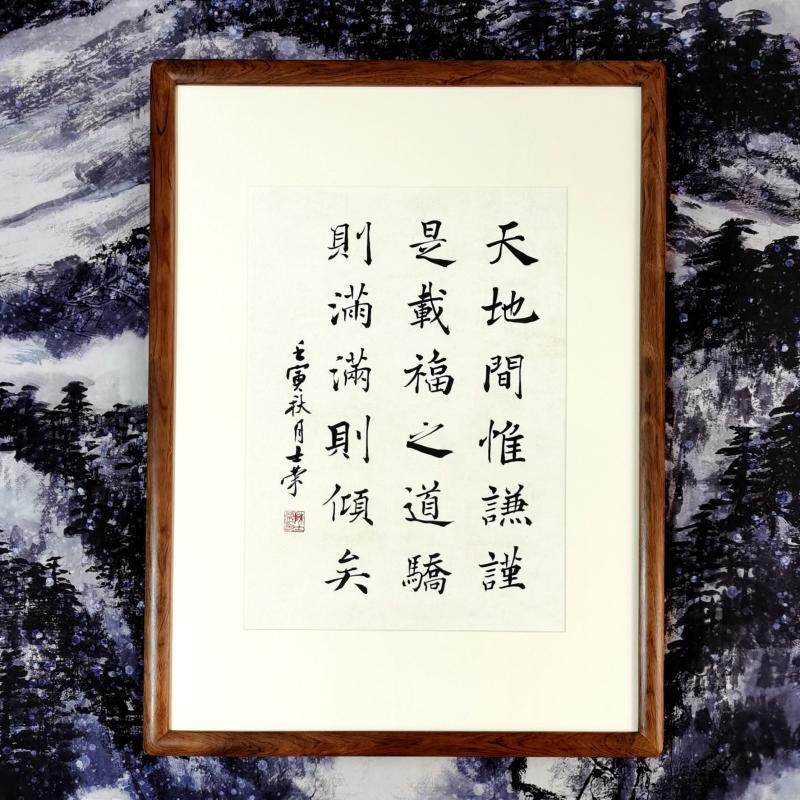 天地間惟謙謹
是載福之道驕
則滿滿則傾矣
壬寅秋月士榮